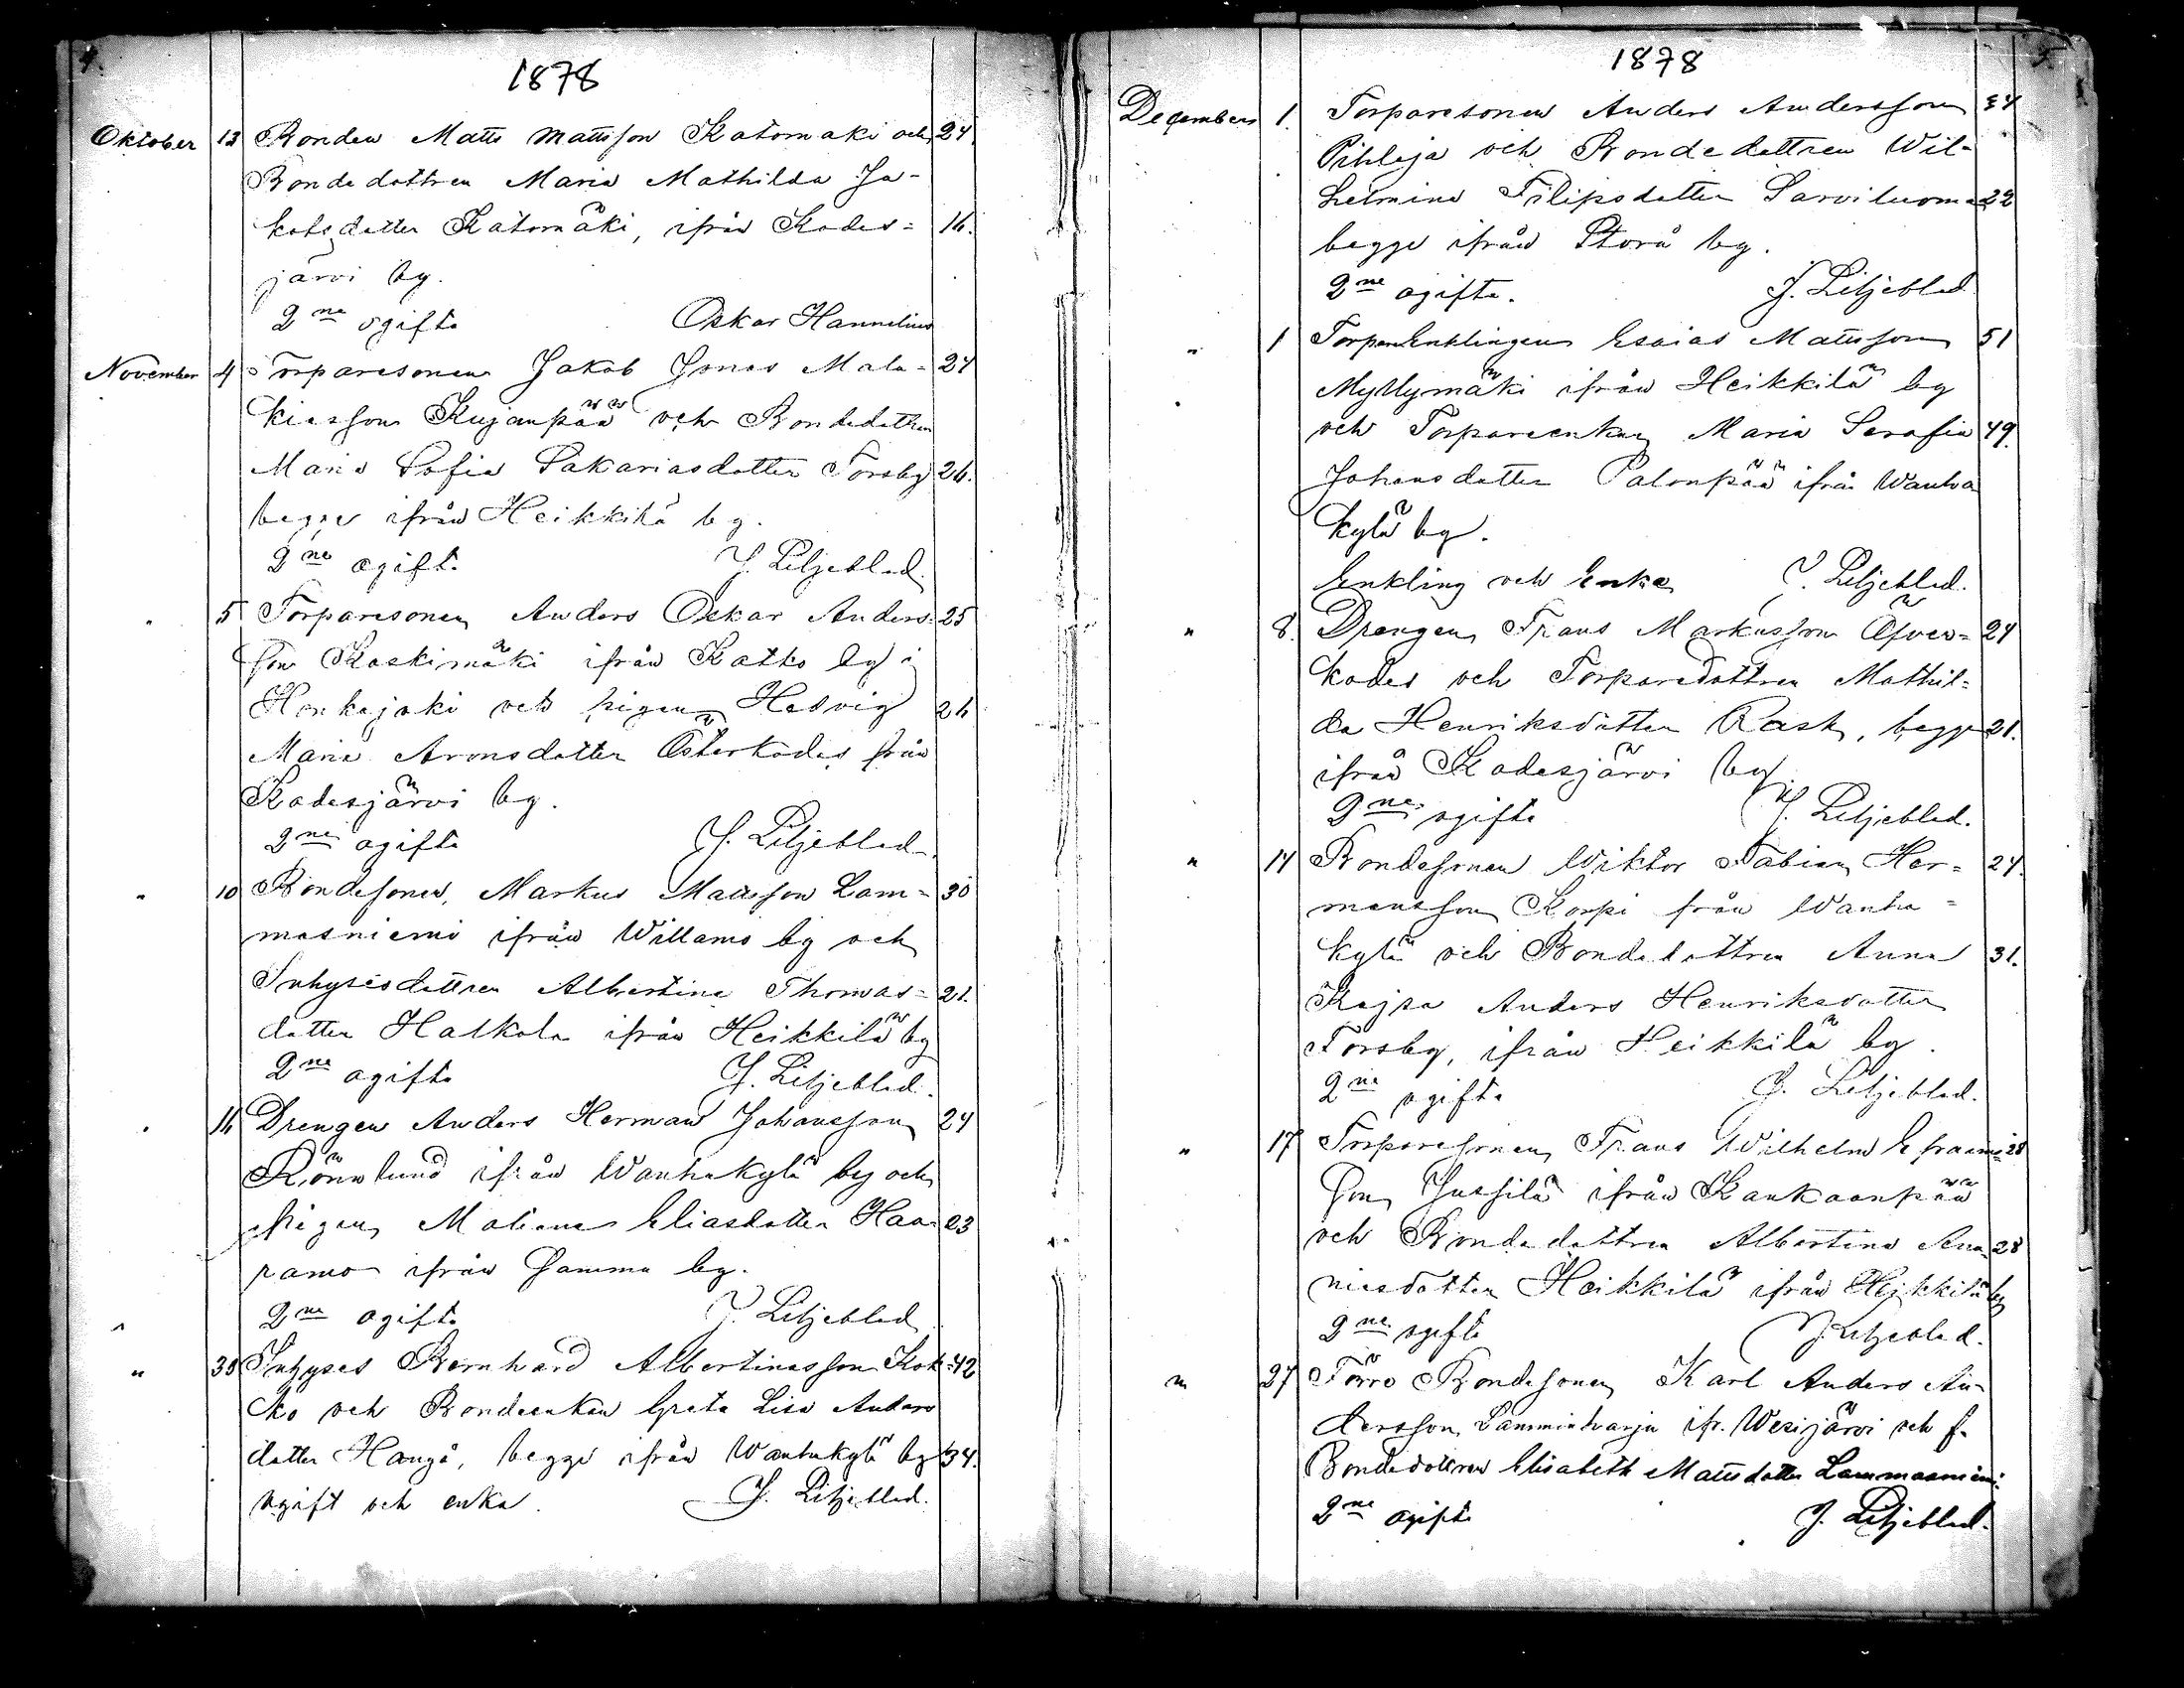 4.
1878
Oktober 13 Bonden Matts Mattsson Katomäki och 24.
Bondedottren Maria Mathilda Ja-
kobsdotter Katomäki, ifrån Kodes= 16.
järvi by.
2ne ogifta Oskar Hannelius
November 4 Torparesonen Jakob Jonas Mala= 24
kiasson Kujanpää och Bondedottren
Maria Sofia Sakariasdotter Forsby 26.
begge ifrån Heikkilä by.
2ne ogifta J. Liljeblad.
" 5 Torparesonen Anders Oskar Anders- 25
son Koskimäki ifrån Katko by i
Honkajoki och pigan Hedvig 26
Maria Aronsdotter Österkodes från
Kodesjärvi by.
2ne ogifta J. Liljeblad.
" 10 Bondesonen, Markus Mattsson Lam= 30
masniemi ifrån Willamo by och
Inhysesdottren Albertina Thomas= 21.
dotter Halkola ifrån Heikkilä by
2ne ogifta J. Liljeblad.
" 16 Drengen Anders Herman Johansson 24
Rönnlund ifrån Wanhakylä by och
pigan Maliana Eliasdotter Haa- 23
ramo ifrån Samma by.
2ne ogifta J. Liljeblad
" 30 Inhyses Bernhard Albertinasson Kok= 42
ko och Bondeenkan Greta Lisa Anders
dotter Hangå, begge ifrån Wanhakylä by 34.
ogift och enka. J. Liljeblad.
5.
1878
December 1. Torparesonen Anders Andersson 24
Pihlaja och Bondedottren Wil-
helmina Filipsdotter Sarviluoma 22
begge ifrån Storå by.
2ne ogifta. J. Liljeblad
" 1 Torparenklingen Esaias Mattsson 51
Myllymäki ifrån Heikkilä by
och Torpareenkan Maria Serafia 49.
Johansdotter Palonpää ifrån Wanha
kylä by.
Enkling och Enka J. Liljeblad.
" 8. Drengen Frans Markusson Öfver= 24
kodes och Torparedottren Mathil=
da Henriksdotter Rask, begge 21.
ifrån Kodesjärvi by.
2ne ogifta J. Liljeblad.
" 14 Bondesonen Wiktor Fabian Her= 24.
mansson Korpi från Wanha=
kylä och Bondedottren Anna 31.
Kajsa Anders Henriksdotter
Forsby, ifrån Heikkilä by.
2ne ogifta J. Liljeblad.
" 17 Torparesonen Frans Wilhelm Efraims= 28
son Jussila ifrån Kankaanpää
och Bondedottren Albertina Ana- 28
niasdotter Heikkilä ifrån Heikkilä by
2ne ogifta J. Liljeblad.
" 27 Förre Bondesonen Karl Anders An-
dersson Lamminharju ifr. Wesijärvi och f.
Bondedottren Elisabeth Mattsdotter Lammasniemi.
2ne ogifta J. Liljeblad.